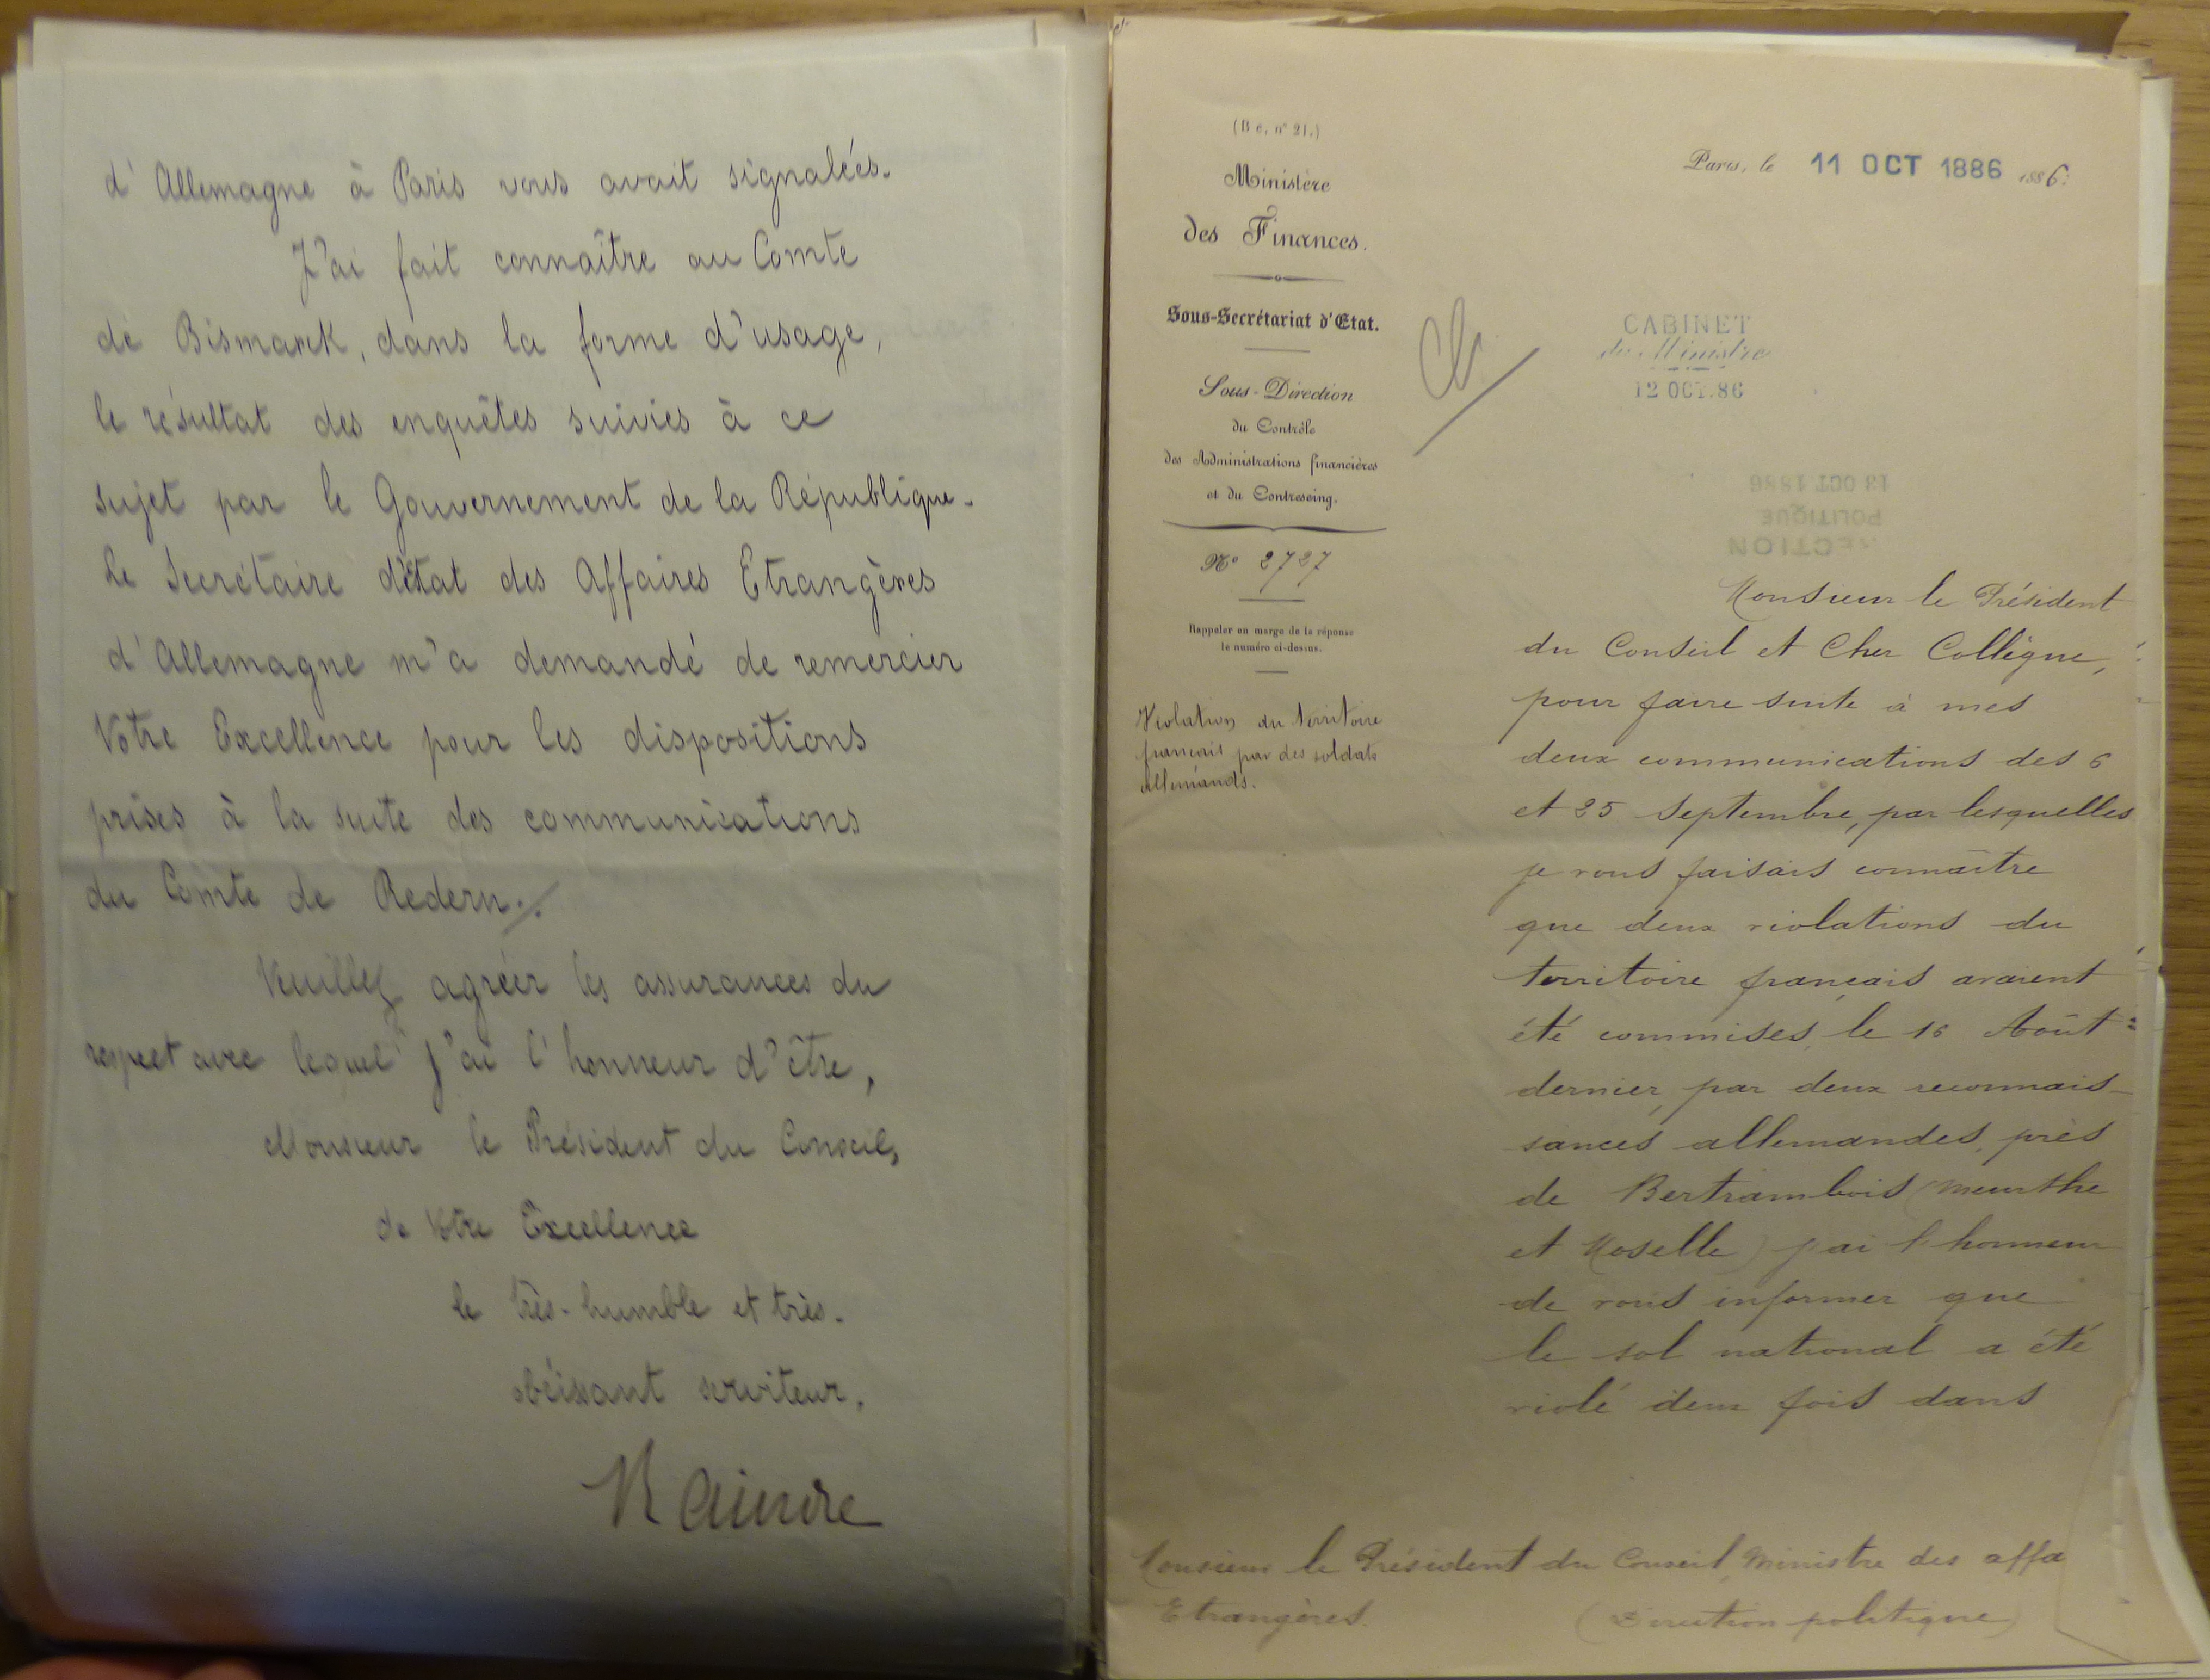 d'Allemagne à Paris vous avait signalées.
J'ai fait connaître au Comte
de Bismarck, dans la forme d'usage,
le résultat des enquêtes suivies à ce
sujet par le Gouvernement de la République.
Le Secrétaire d'état des Affaires Etrangères
d'Allemagne m'a demandé de remercier
Votre Excellence pour les dispositions
prises à la suite des communications
du Comte de Redern./.
Veuillez agréer les assurances du
respect avec lequel j'ai l'honneur d'être,
Monsieur le Président du Conseil,
de Votre Excellence
le très-humble et très-
obéissant serviteur,
Raindre
(Be, n° 21.)
Ministère
des Finances.
Sous-Secrétariat d'Etat.
Sous-Direction
du Contrôle
des Administrations financières
et du Contreseing.
N° 2727
Rappeler en marge de la réponse
le numéro ci-dessus.
Violation du territoire
français par des soldats
allemands.
Paris, le 11 OCT 1886 1886.
CABINET
du Ministre
12 OCT. 86
13 OCT. 1886
POLITIQUE
Monsieur le Président
du Conseil et Cher Collègue,
pour faire suite à mes
deux communications des 6
et 25 Septembre, par lesquelles
je vous faisais connaître
que deux violations du
territoire français avaient
été commises, le 16 Août
dernier, par deux reconnais-
sances allemandes, près
de Bertrambois (Meurthe
et Moselle) j'ai l'honneur
de vous informer que
le sol national a été
violé deux fois dans
Monsieur le Président du Conseil, Ministre des affa
Etrangères. (Direction politique)